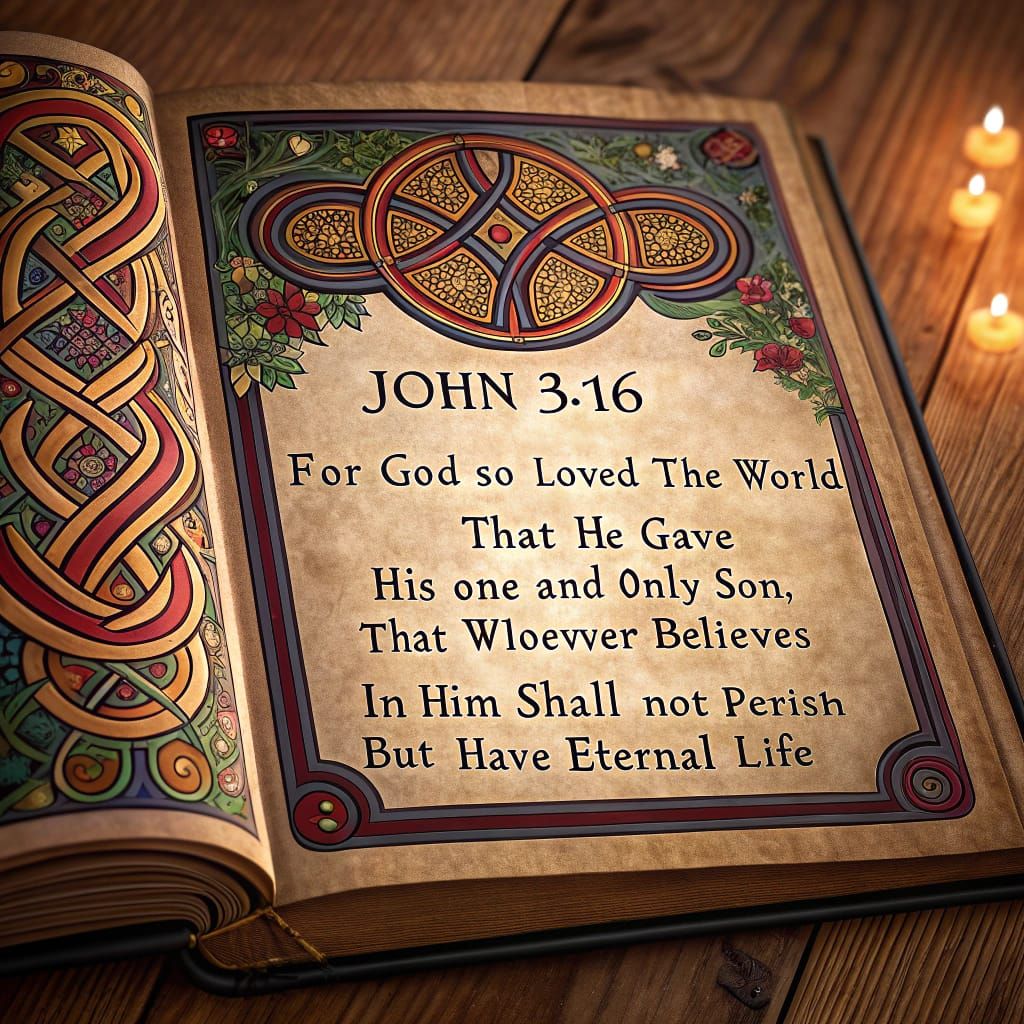 JOHN 3.16
For God so Loved The World
That He Gave
His one and Only Son,
That Wloevver Believes
In Him Shall not Perish
But Have Eternal Life